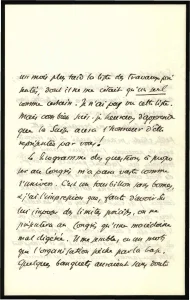 un mois plus tard la liste des travaux pré-
parés, dont il ne me citait qu'un seul
comme certain. Je n'ai pas vu cette liste.
Mais combien suis-je heureux d'apprendre
que la Suisse aura l'honneur d'être
représentée par vous!
Le Programme des questions à propo-
ser au Congrès m'a paru vaste comme
l'univers. C'est un tourbillon sans bornes,
& j'ai l'impression que, faute d'avoir su
lui imposer des limites précises, on ne
préparera au Congrès qu'une macédoine
mal digérée. Il me semble, en un mot
que l'organisation pèche par la base.
Quelques banquets auraient sans doute